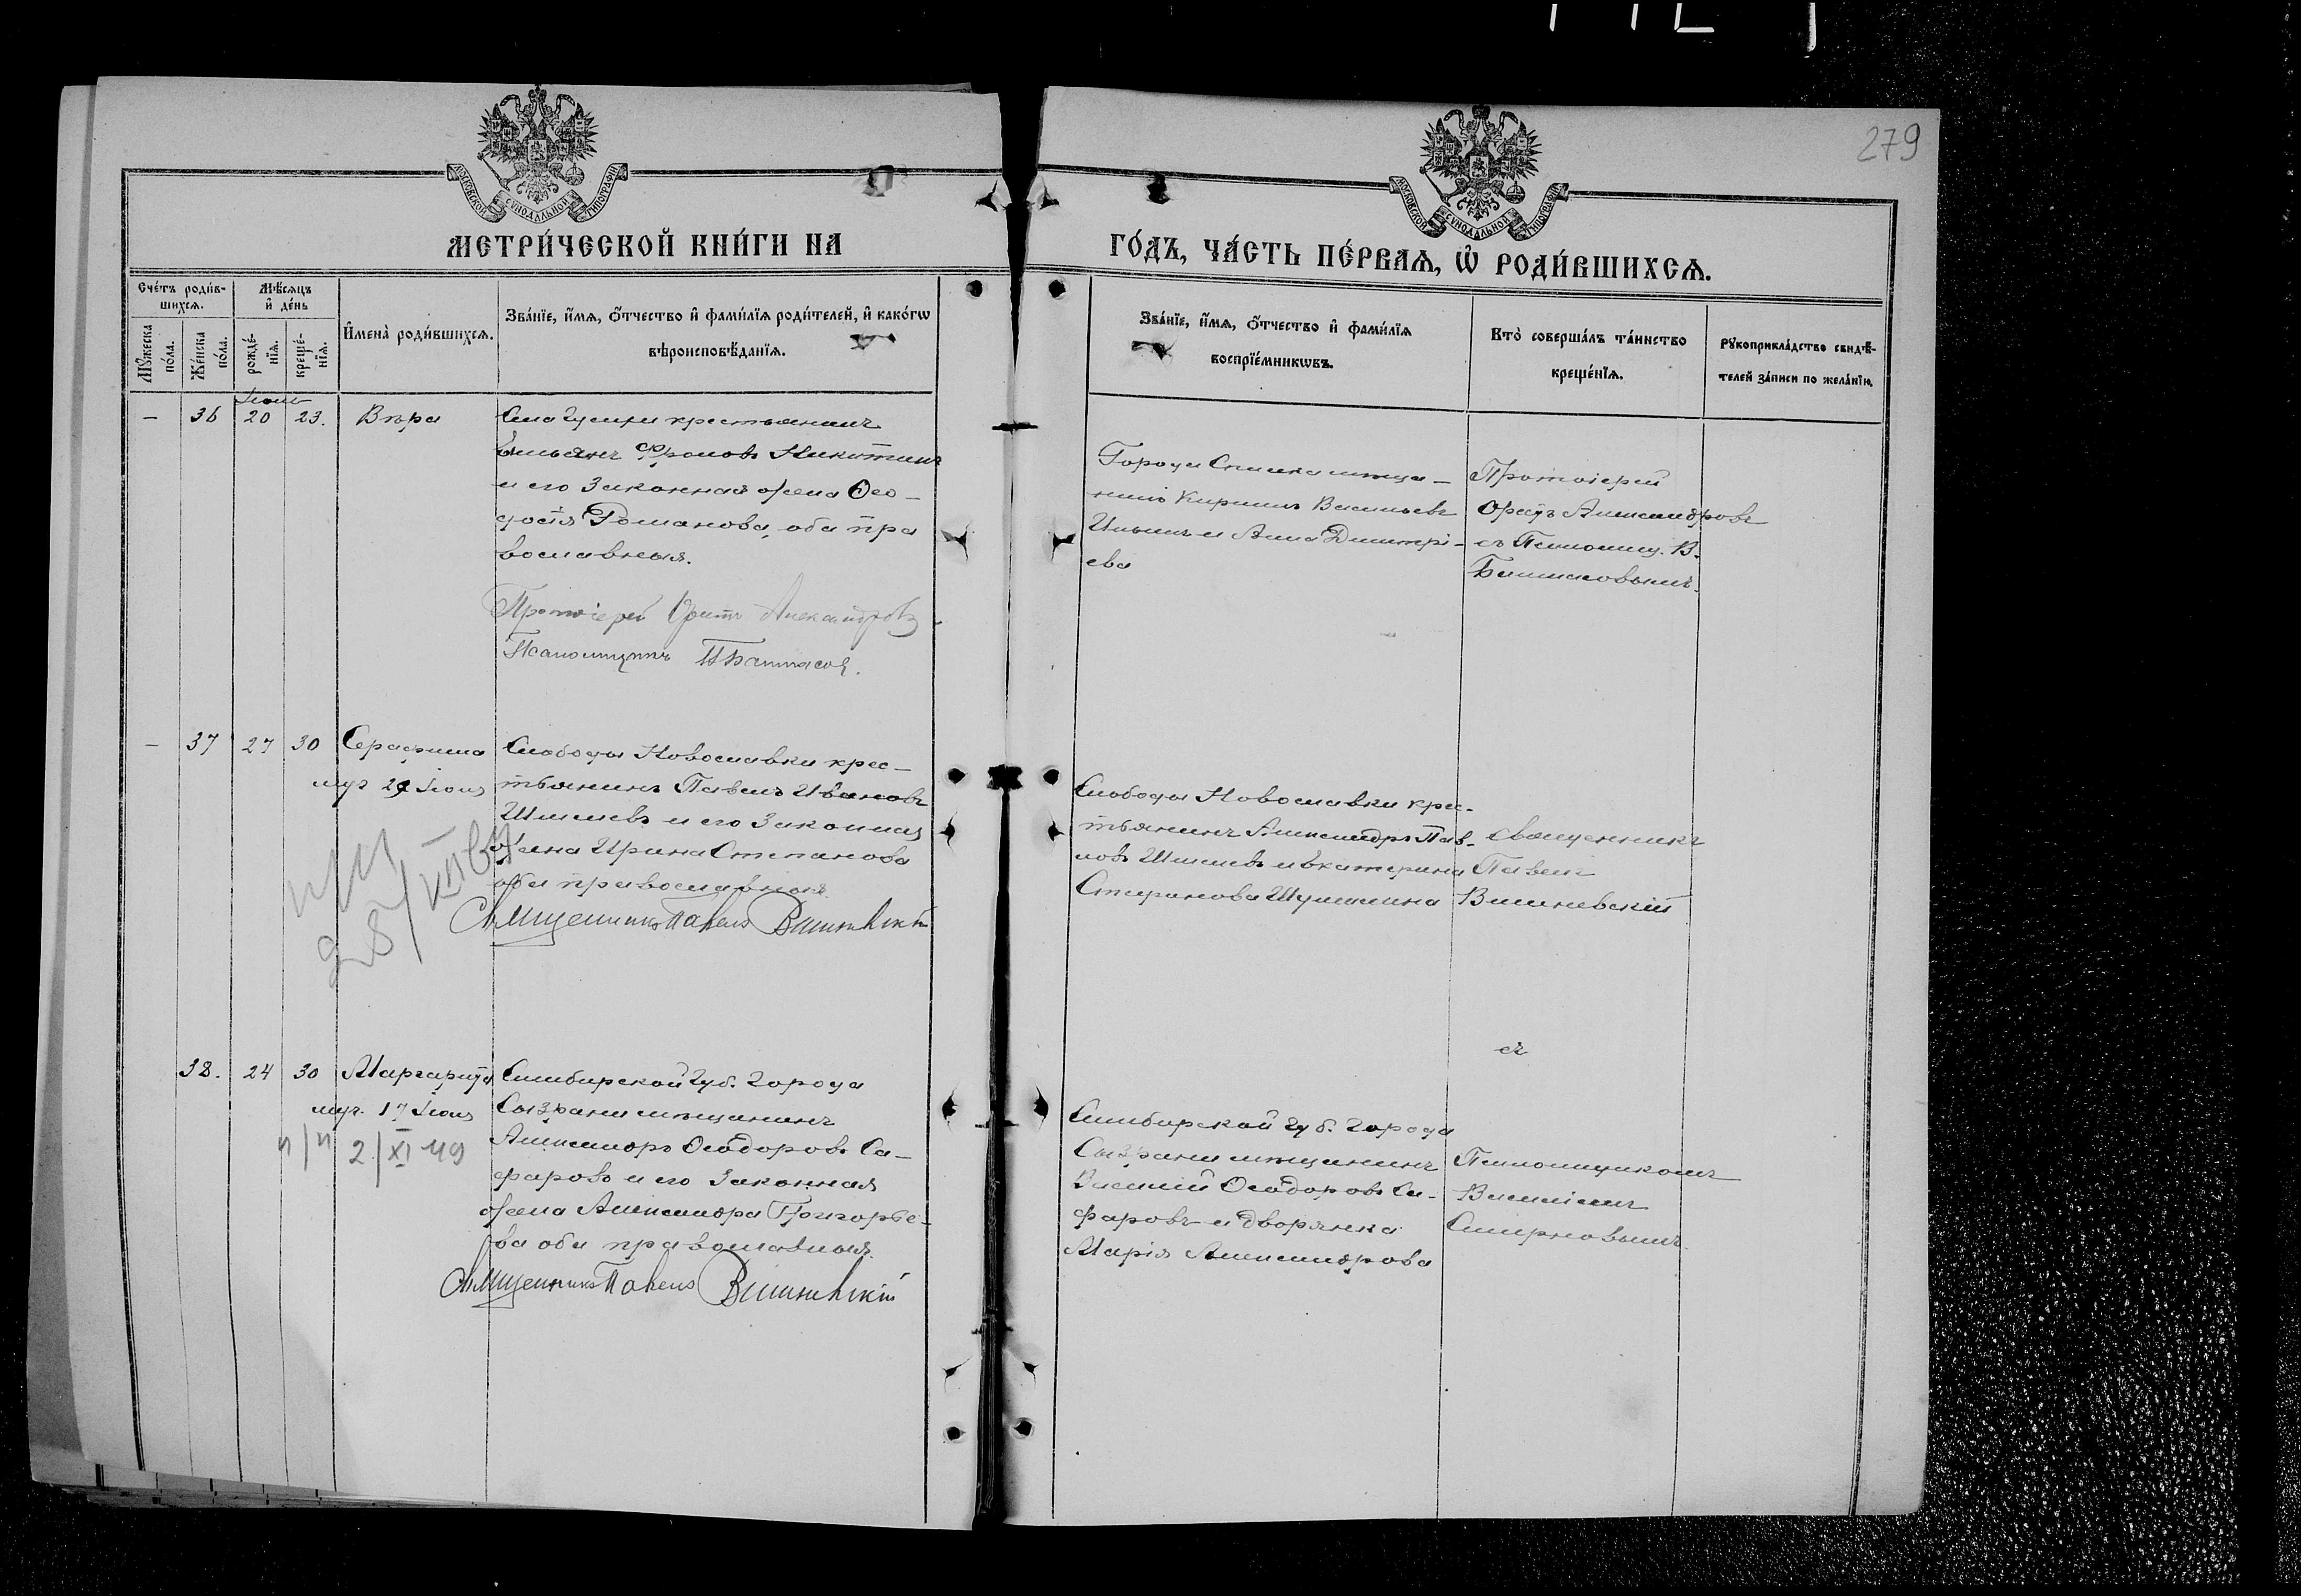 279
МОСКОВСКОЙ СУНОДАЛЬНОЙ ТИПОГРАФІИ
МОСКОВСКОЙ СУНОДАЛЬНОЙ ТИПОГРАФІИ
МЕТРИ́ЧЕСКОЙ КНИ́ГИ НА
ГО́ДЪ, ЧА́СТЬ ПЕ́РВАЯ, Ѡ РОДИ́ВШИХСЯ.
Сче́тъ роди́в-
шихся.
Мѣ́сяцъ
и де́нь
Му́жеска
по́ла.
Же́нска
по́ла.
рожде́-
нїя.
креще́-
нїя.
Имена̀ роди́вшихся.
Зва́нїе, и́мя, о́тчество и фами́лїя роди́телей, и како́гѡ
вѣроисповѣ́данїя.
Зва́нїе, и́мя, о́тчество и фами́лїя
воспрїе́мникѡвъ.
Кто̀ соверша́лъ та́инство
креще́нїя.
Рукоприкла́дство свидѣ́-
телей за́писи по жела́нїю.
— 36 20 23. Вѣра
крестьянинъ
Емельянъ Фроловъ Никитинъ
и его законная жена Ѳео-
досія Романова, оба пра
вославныя.
Протоіерей Александровъ
Псаломщикъ
Города мѣща-
нинъ Кириллъ Васильевъ
Ильинъ и Анна Димитрі-
ева
Протоіерей
Александровъ
съ Псаломщ. В.
— 37 27 30 Серафима
муч 29 Іюля
Слободы Новославки крес-
тьянинъ Павелъ Ивановъ
и его законная
жена Ирина Степанова
оба православныя
Священникъ Павелъ Вишневскій
Слободы Новославки крес-
тьянинъ Александръ Пав-
ловъ и Екатерина
Священникъ
Павелъ
Вишневскій
38. 24 30 Маргарита
муч. 17 Іюля
п/п 2/XI 49
Симбирской Губ. города
Сызрани мѣщанинъ
Александръ Ѳеодоровъ Са-
фаровъ и его законная
жена Александра Григорье-
ва оба православныя.
Священникъ Павелъ Вишневскій
Симбирской Губ. города
Сызрани мѣщанинъ
Василій Ѳеодоровъ Са-
фаровъ и дворянка
Марія Александрова
съ
Псаломщикомъ
Василіемъ
Смирновымъ.